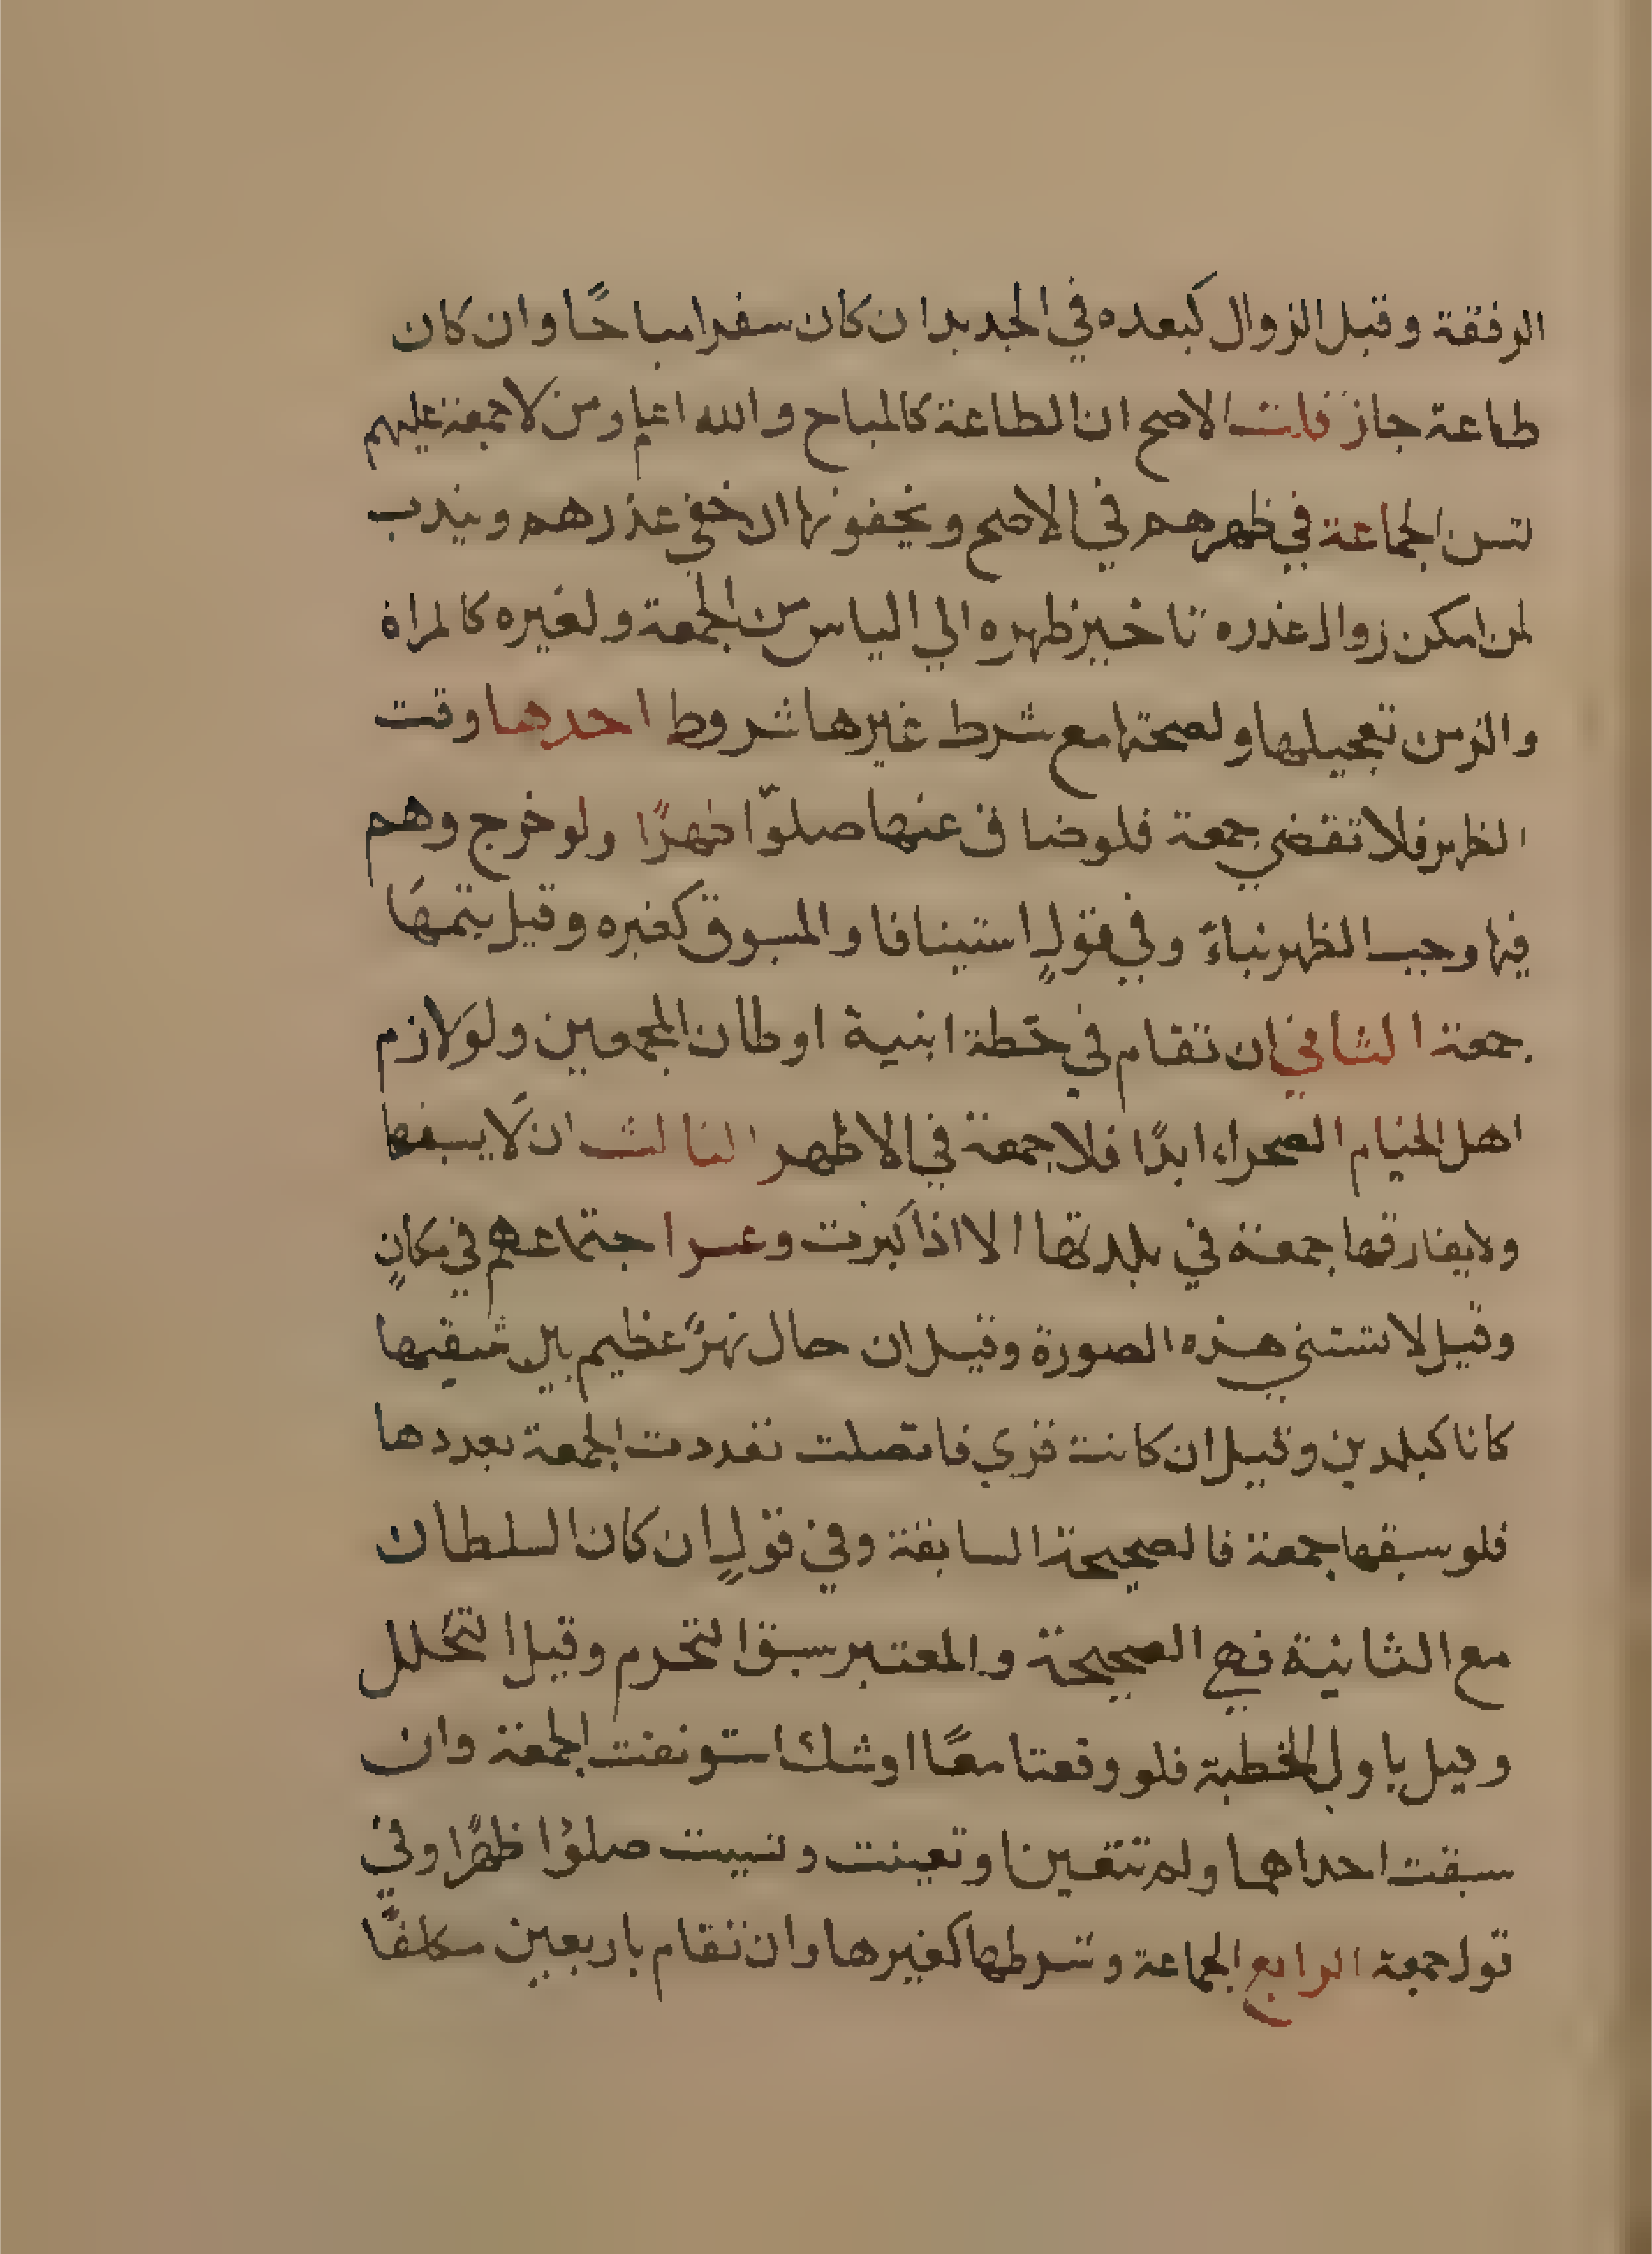 الرفقة وقبل الزوال كبعده في الجديد ان كان سفرا مباحًا وان كان
طاعة جاز قلت الاصح ان الطاعة كالمباح والله اعلم ومن لا جمعة عليهم
تسن الجماعة في ظهرهم في الاصح ويخفونها ان خفي عذرهم ويندب
لمن امكن زوال عذره تاخير ظهره الي الياس من الجمعة ولغيره كالمراة
والزمن تعجيلها ولصحتها مع شرط غيرها شروط احدها وقت
الظهر فلا تقضي جمعة فلو ضاق عنها صلوّا ظهرًا ولو خرج وهم
فيها وجب الظهر بناءً وفي قولٍ استينافا والمسبوق كغيره وقيل يتمهَا
جمعة الثاني ان تقام في خطة ابنية اوطان المجمعين ولو لازم
اهل الخيام الصحراء ابدًا فلا جمعة في الاظهر الثالث ان لَا يسبقها
ولا يقارقها جمعة في بلدتها الا اذا كبرت وعسر اجتماعهم في مكانٍ
وقيل لا تستثني هذه الصورة وقيل ان حال نهرٌ عظيم بين شقيها
كانا كبلدين وقيل ان كانت قري فاتصلت تعددت الجمعة بعددها
فلو سبقها جمعة فالصحيحة السابقة وفي قولٍ ان كان السلطان
مع الثانية فهي الصحيحة والمعتبر سبق التحرم وقيل التحلل
وقيل باول الخطبة فلو وقعتا معًا او شك استونفت الجمعة وان
سبقت احداهما ولم تتعين او تعينت ونسيت صلوُا ظهرًا وفي
قول جمعة الرابع الجماعة وشرطها كغيرها وان تقام باربعين مكلفًا